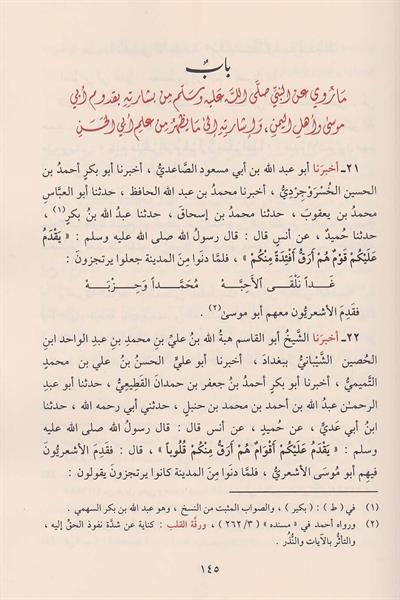 بابٌ
مَا رُوِي عن النَّبي صلَّى اللّٰه عليه وسَلَّم مِن بشارتِهِ بقدومِ أَبي
موسَى وأَهلِ اليمنِ، وَإشارتِهِ إلى مَا يظهرُ مِن علمِ أَبي الحَسَن
٢١ـ أخبرَنا أبو عبد الله بن أبي مسعود الصاعديُّ، أخبرنا أبو بكرٍ أحمدُ بن
الحسين الخُسْرَوْجِرْدِيُّ، أخبرنا محمدُ بن عبد الله الحافظ، حدثنا أبو العباسِ
محمدُ بن يعقوبَ، حدثنا محمدُ بن إسحاقَ، حدثنا عبدُ الله بنُ بكرٍ(١)،
حدثنا حُميدٌ، عن أنسٍ قال: قال رسولُ الله صلى الله عليه وسلم: «يَقْدَمُ
عَلَيْكُمْ قَوْمٌ هُمْ أَرَقُّ أَفْئِدَةً مِنْكُمْ»، فلمَّا دنَوا مِنَ المدينة جعلُوا يرتجزونَ:
غَداً نَلْقَى الأَحِبَّهْ مُحَمَّداً وَحِزْبَهْ
فقَدِمَ الأشعريُّون معهم أبو موسىٰ(٢).
٢٢ـ أخبرَنا الشيخُ أبو القاسمِ هبةُ الله بنُ عليِّ بنِ محمدِ بن عبد الواحد ابنِ
الحُصين الشَّيْبانيُّ ببغدادَ، أخبرنا أبو عليٍّ الحسنُ بنُ علي بن محمدٍ
التميميُّ، أخبرنا أبو بكرٍ أحمدُ بنُ جعفر بن حمدانَ القَطِيعيُّ، حدثنا أبو عبد
الرحمٰن عبدُ الله بن أحمد بن محمد بن حنبلٍ، حدثني أبي رحمه الله، حدثنا
ابنُ أبي عَديٍّ، عن حُميدٍ، عن أنسٍ قال: قال رسولُ الله صلى الله عليه
وسلم: «يَقْدَمُ عَلَيْكُمْ أَقْوَامٌ هُمْ أَرَقُّ مِنْكُمْ قُلُوباً»، قال: فقَدِمَ الأشعريُّونَ
فيهم أبو موسَى الأشعريُّ، فلمَّا دنَوا مِنَ المدينة كانوا يرتجزونَ يقولون:
(١) في (ط): (بكير)، والصواب المثبت من النسخ، وهو عبد الله بن بكر السهمي.
(٢) ورواه أحمد في «مسنده» (٣/٢٦٢)، ورقَّة القلب: كناية عن شدَّة نفوذ الحقِّ إليه،
والتأثُّر بالآيات والنُّذُر.
١٤٥